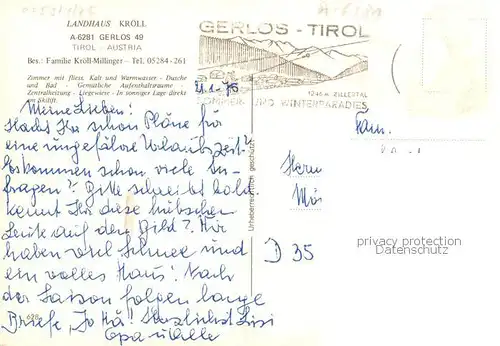 LANDHAUS KRÖLL
A-6281 GERLOS 49
TIROL - AUSTRIA
Bes.: Familie Kröll-Millinger - Tel. 05284 - 261
Zimmer mit fliess. Kalt und Warmwasser - Dusche
und Bad - Gemütliche Aufenthaltsräume -
Zentralheizung - Liegewiese - In sonniger Lage direkt
am Skilift.
GERLOS - TIROL
21.1.76
1246 m. ZILLERTAL
SOMMER- UND WINTERPARADIES
Meine Lieben!
Habts Ihr schon Pläne für
eine ungefähre Urlaubszeit?
Es kommen schon viele An-
fragen? Bitte schreibt bald.
Kennt Ihr diese hübschen
Leute auf dem Bild? Wir
haben viel Schnee und
ein volles Haus! Nach
der Saison folgen lange
Briefe, Herzlichst Lisi
Opa u. Alle
Urheberrechtlich geschützt
Fam.
Herrn
D 35
privacy protection
Datenschutz